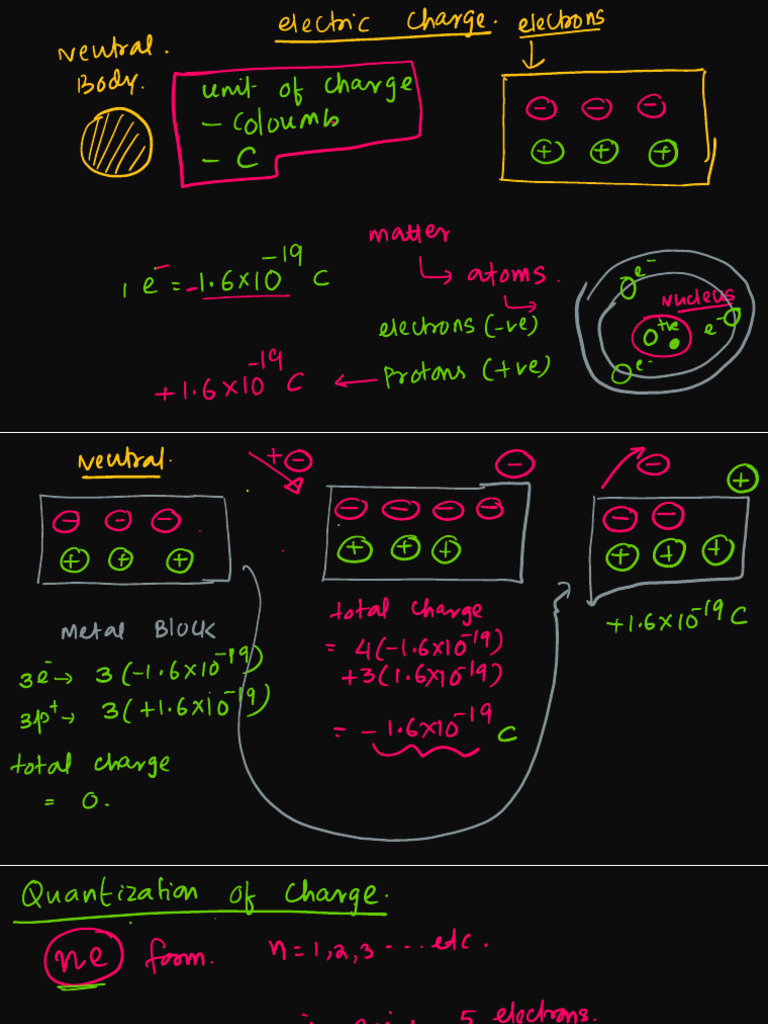 electric charge. electrons
Neutral.
Body.
unit of charge
- Coloumb
- C
matter
atoms.
electrons (-ve)
Protons (+ve)
1 e⁻ = -1.6×10⁻¹⁹ C
+1.6×10⁻¹⁹ C
Nucleus
+ve
e⁻
e⁻
e⁻
Neutral.
Metal BLOCK
3e⁻→ 3(-1.6×10⁻¹⁹)
3p⁺→ 3(+1.6×10⁻¹⁹)
total charge
= 0.
total charge
= 4(-1.6×10⁻¹⁹)
+3(1.6×10⁻¹⁹)
= -1.6×10⁻¹⁹ C
+1.6×10⁻¹⁹ C
Quantization of Charge.
ne form. n=1,2,3 ---- etc.
5 electrons.